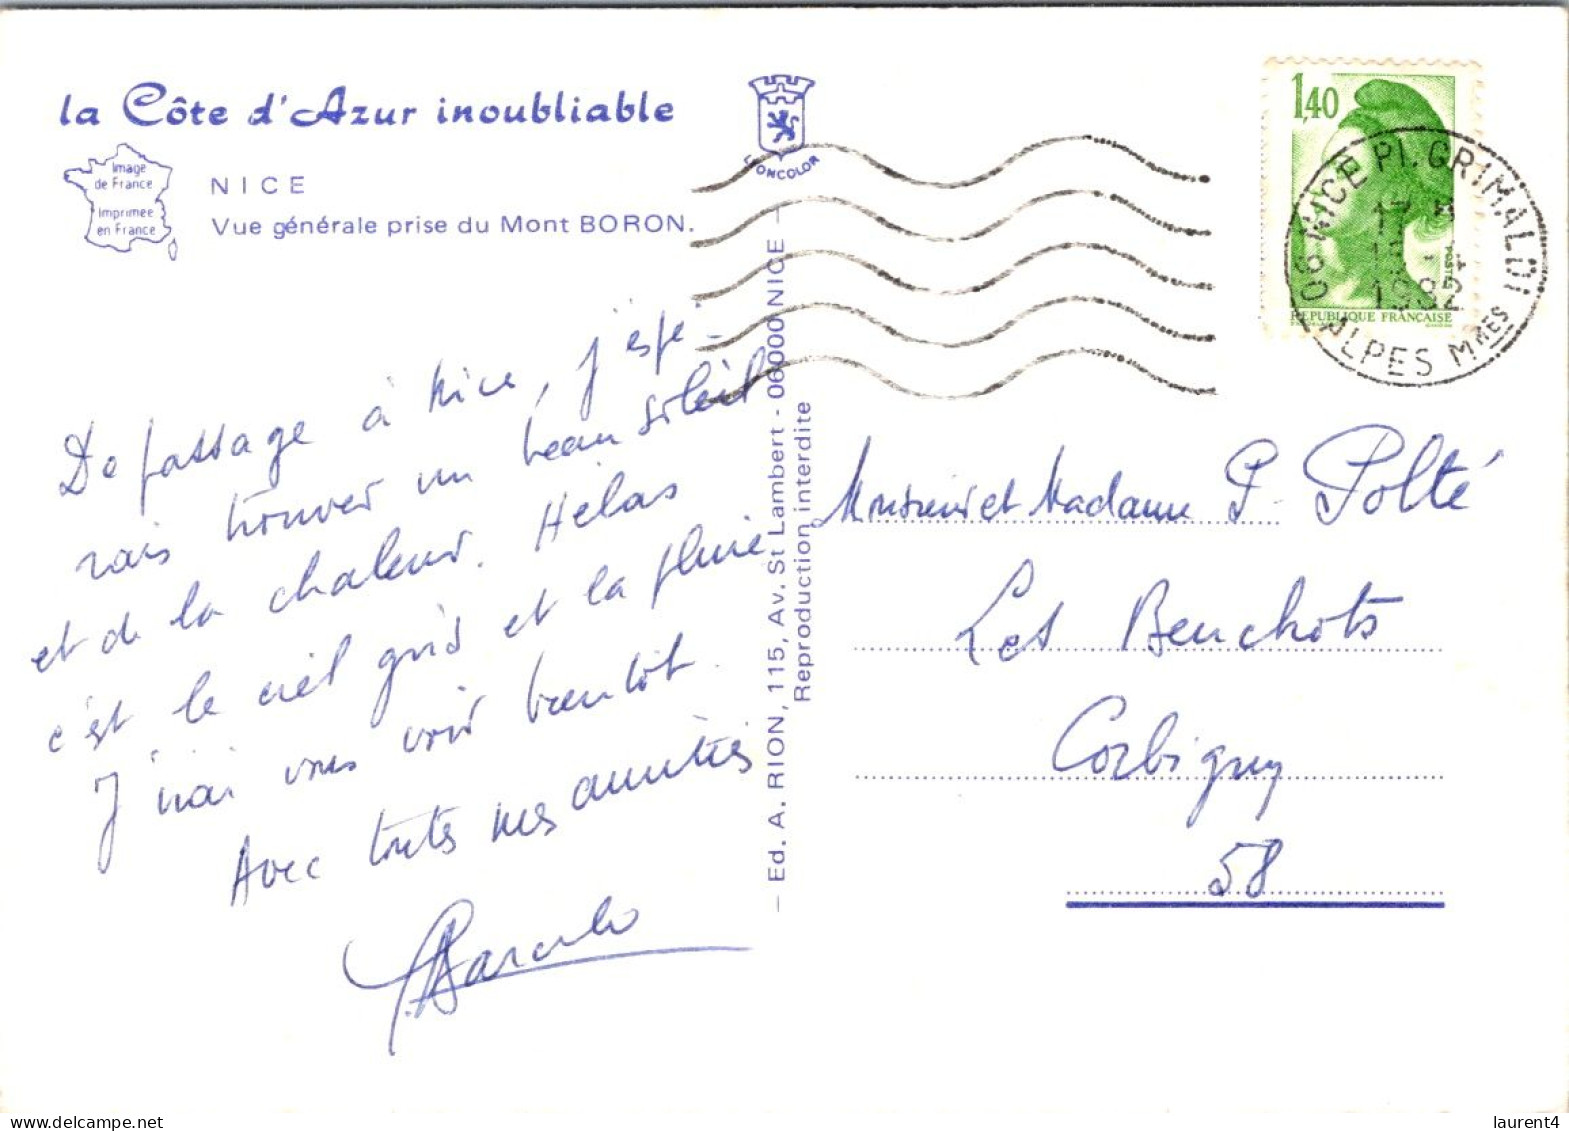 la Côte d'Azur inoubliable
Image
de France
Imprimée
en France
NICE
Vue générale prise du Mont BORON.
De passage à Nice, j'espé-
rais trouver un beau soleil
et de la chaleur. Hélas
c'est le ciel gris et la pluie
J'irai vous voir bientôt.
Avec toutes mes amitiés
YONCOLOR
— Ed. A. RION, 115, Av. St Lambert - 06000 NICE —
Reproduction interdite
1,40
POSTES
REPUBLIQUE FRANÇAISE
06 NICE PL. GRIMALDI
1982
ALPES MMES
Monsieur et Madame P. Polté
Les Beuchots
Corbigny
58
laurent4